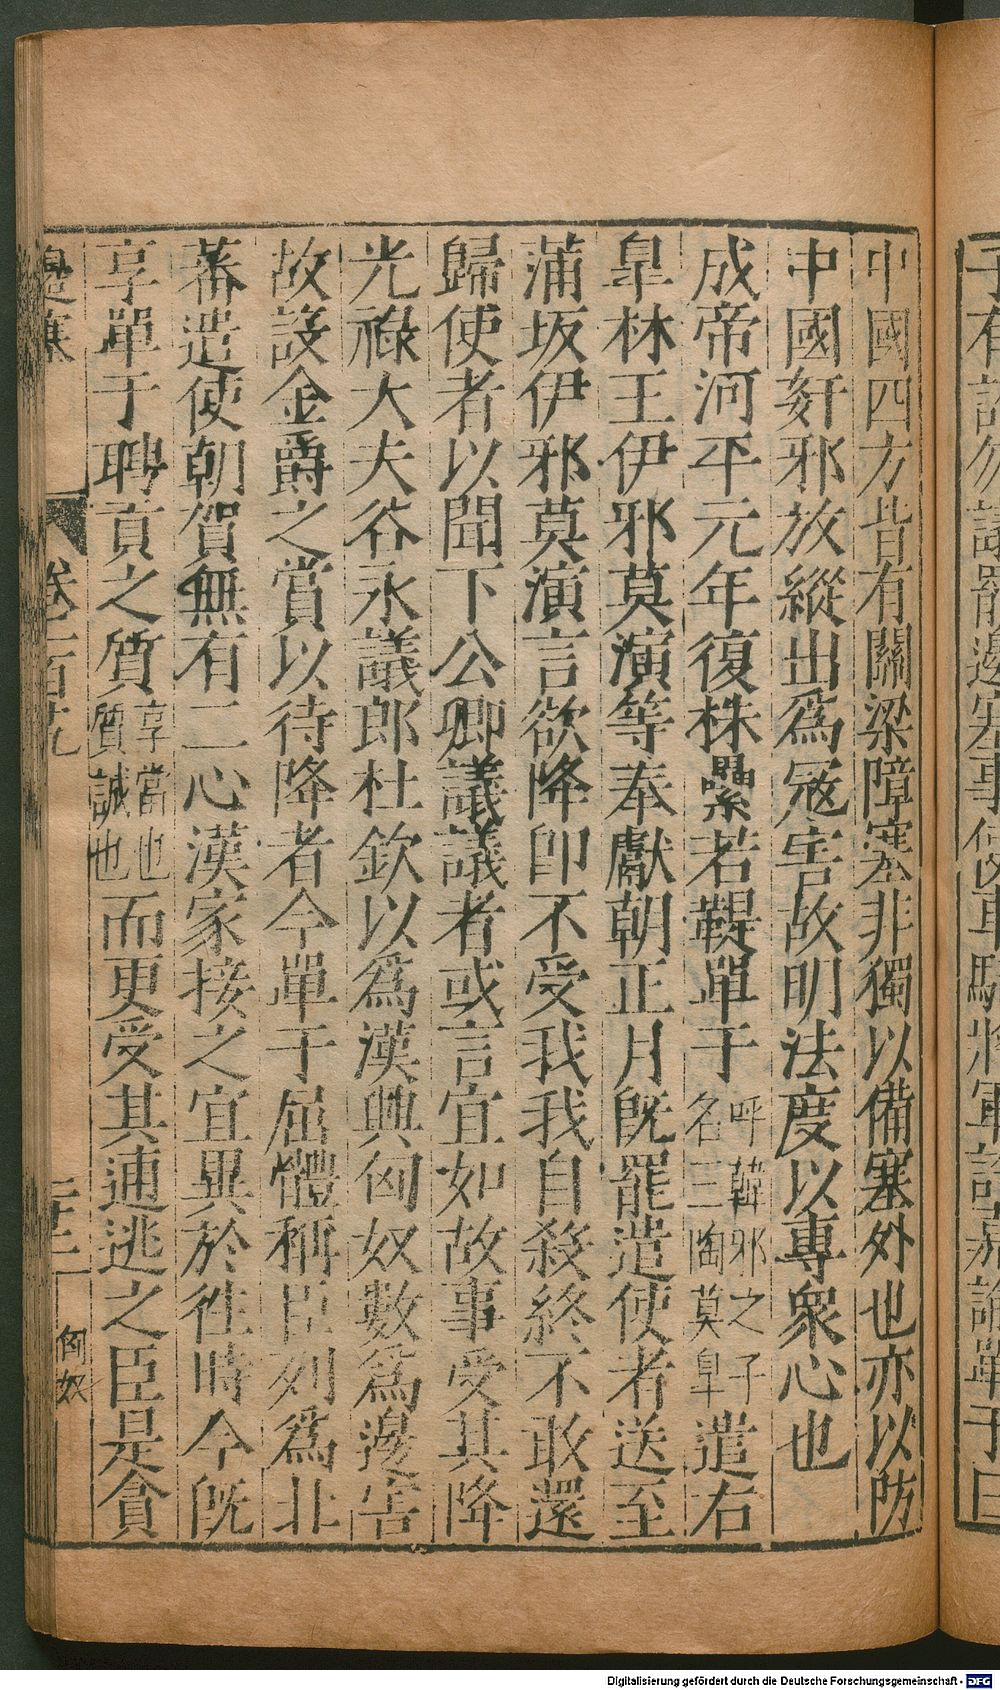 中國四方皆有關梁障塞非獨以備塞外也亦以防
中國姧邪放縱出爲冦害故明法度以專衆心也
成帝河平元年復株纍若鞮單于呼韓邪之子名三陶莫皐遣右
皐林王伊邪莫演等奉獻朝正月旣罷遣使者送至
蒲坂伊邪莫演言欲降卽不受我我自殺終不敢還
歸使者以聞下公卿議議者或言宜如故事受其降
光祿大夫谷永議郎杜欽以爲漢興匈奴數爲邊害
故設金爵之賞以待降者今單于屈體稱臣列爲北
蕃遣使朝賀無有二心漢家接之宜異於徃時今旣
享單于聘貢之質享當也質誠也而更受其逋逃之臣是貪
匈奴
Digitalisierung gefördert durch die Deutsche Forschungsgemeinschaft - DFG